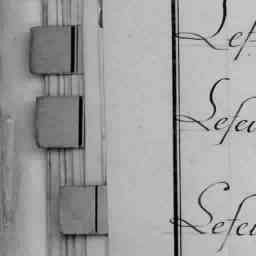 Lef
Lefeu
Lefeu